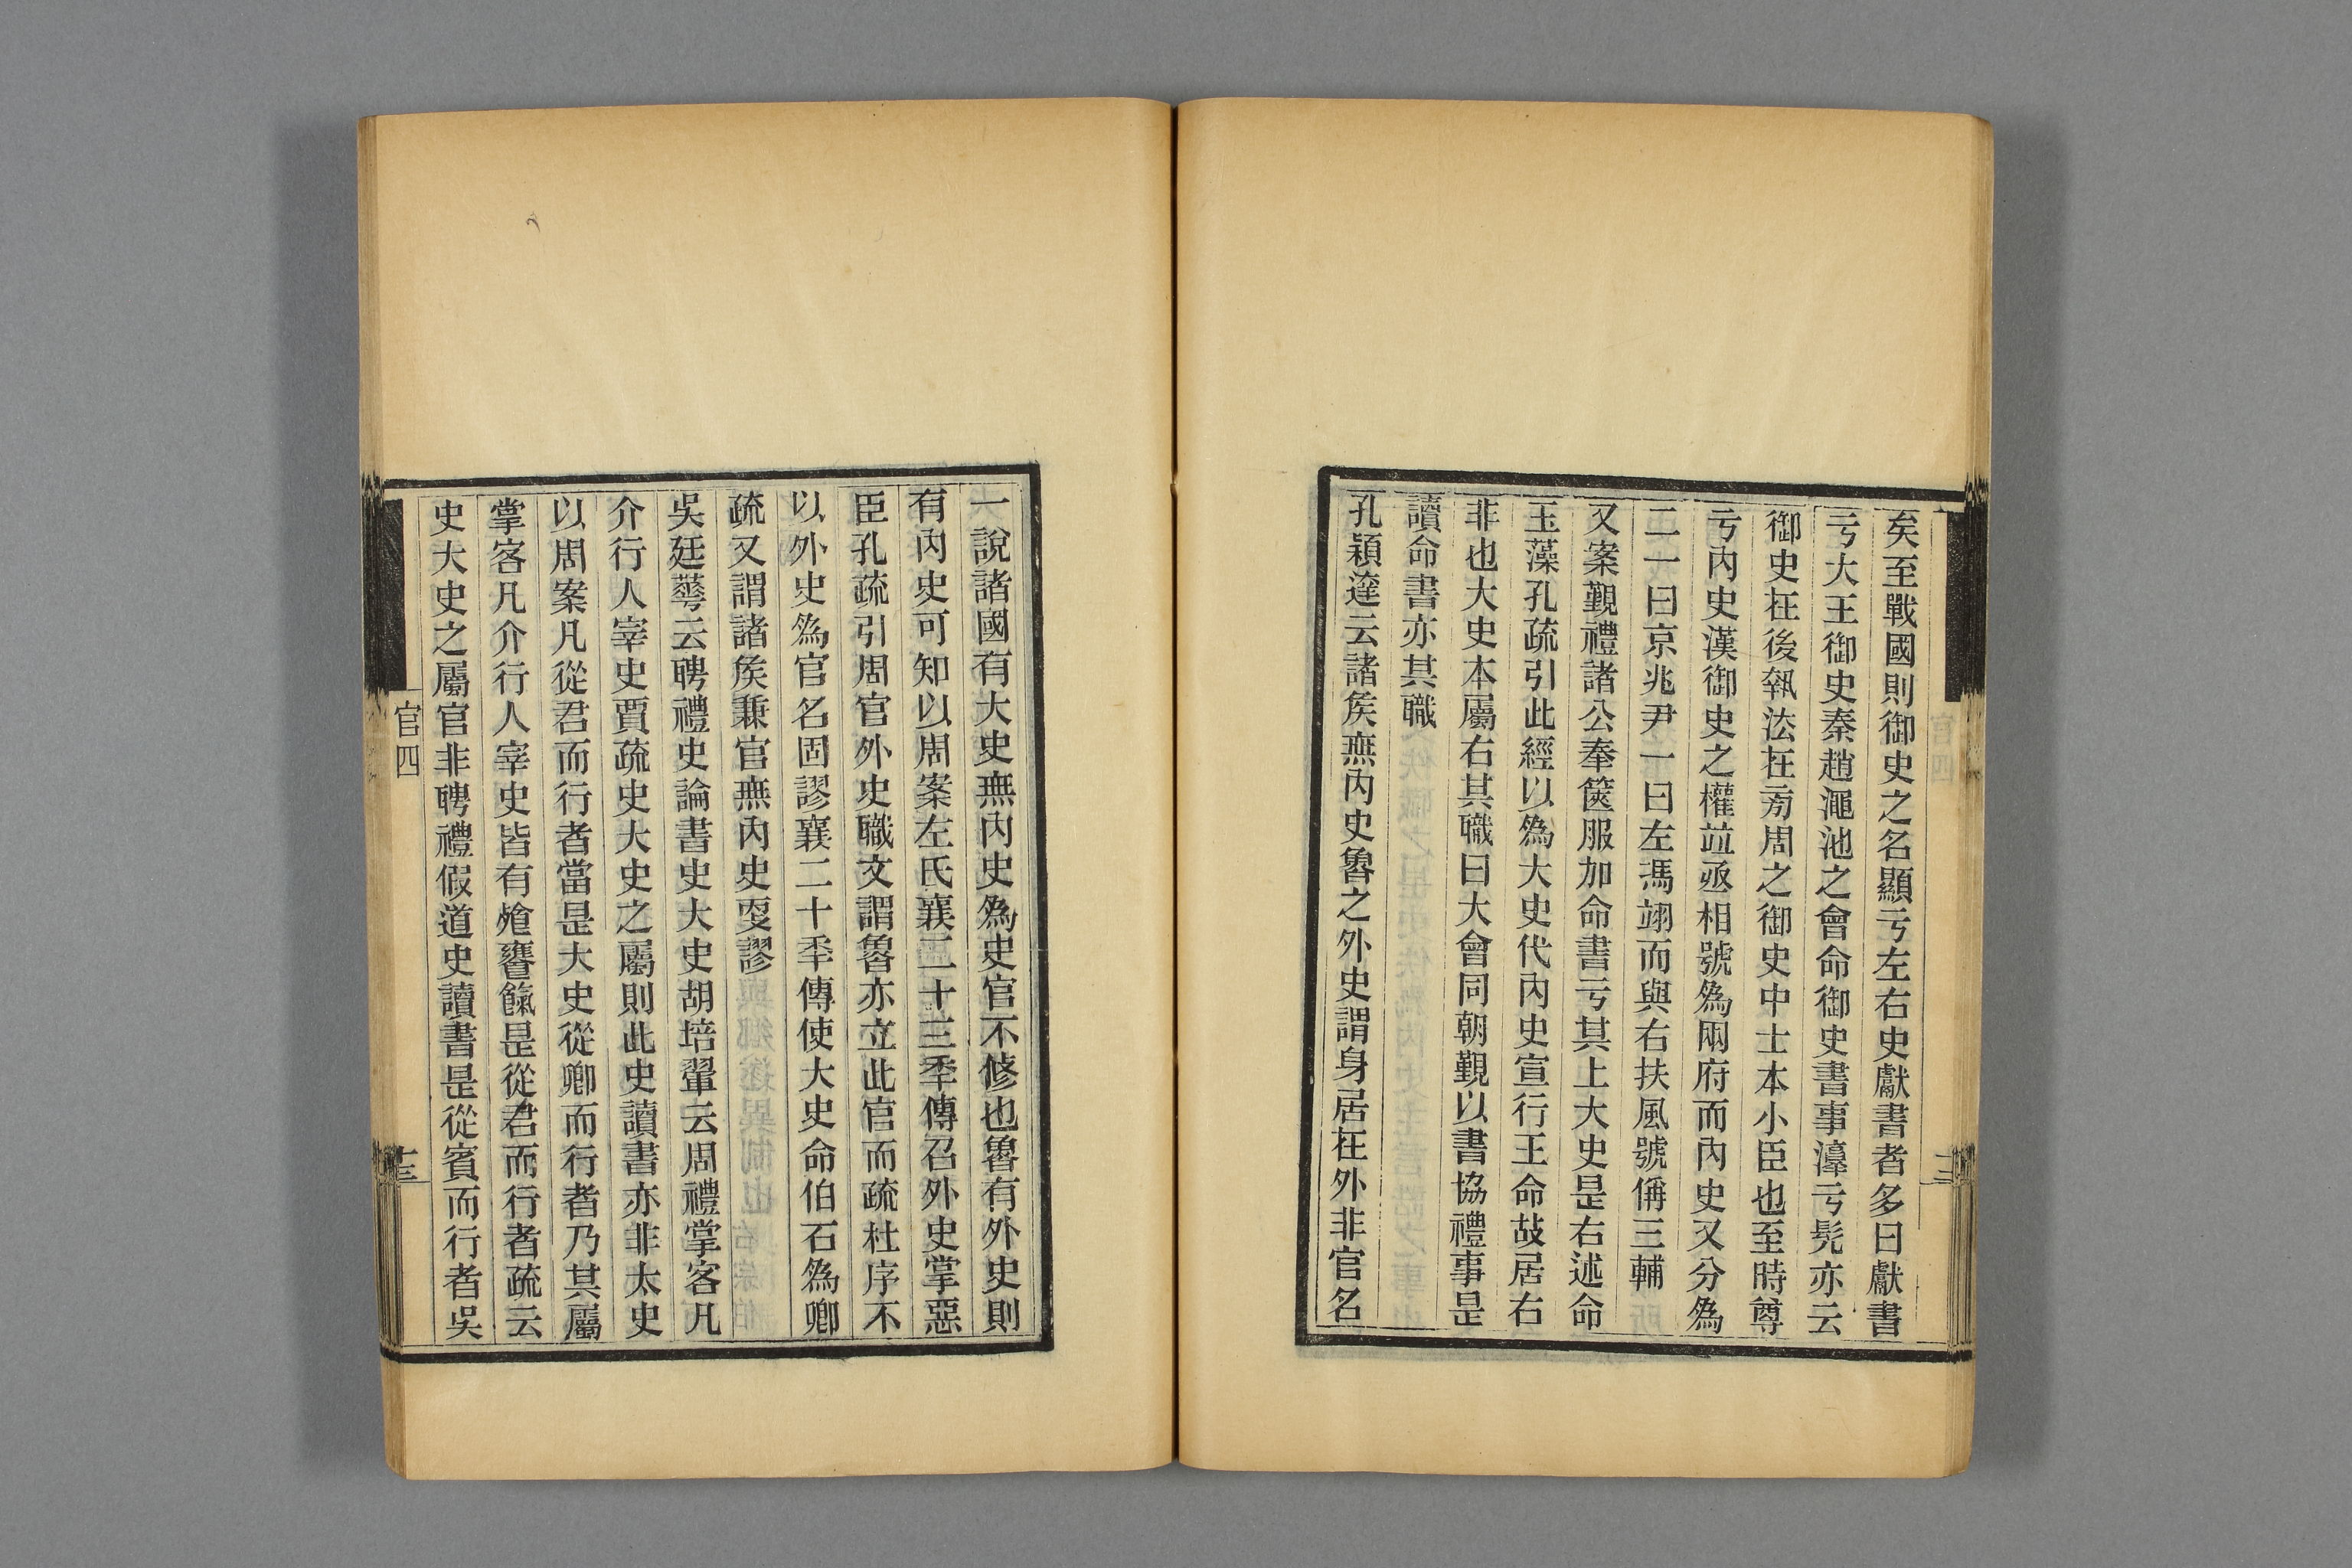 矣至戰國則御史之名顯亏左右史獻書者多曰獻書
亏大王御史秦趙澠池之會命御史書事濢亏髡亦云
御史在後執法在旁周之御史中士本小臣也至時尊
亏內史漢御史之權竝丞相號為兩府而內史又分為
二一曰京兆尹一曰左馮翊而與右扶風號偁三輔
又案覲禮諸公奉篋服加命書亏其上大史是右述命
玉藻孔疏引此經以為大史代內史宣行王命故居右
非也大史本屬右其職曰大會同朝覲以書協禮事是
讀命書亦其職
孔穎達云諸矦無內史魯之外史謂身居在外非官名
一說諸國有大史無內史為史官不修也魯有外史則
有內史可知以周案左氏襄二十三秊傳召外史掌惡
臣孔疏引周官外史職文謂魯亦立此官而疏杜序不
以外史為官名固謬襄二十秊傳使大史命伯石為卿
疏又謂諸矦兼官無內史叓謬
吳廷華云聘禮史論書史大史胡培翬云周禮掌客凡
介行人宰史賈疏史大史之屬則此史讀書亦非太史
以周案凡從君而行者當是大史從卿而行者乃其屬
掌客凡介行人宰史皆有飧饔餼是從君而行者疏云
史大史之屬官非聘禮假道史讀書是從賓而行者吳
官四
十三